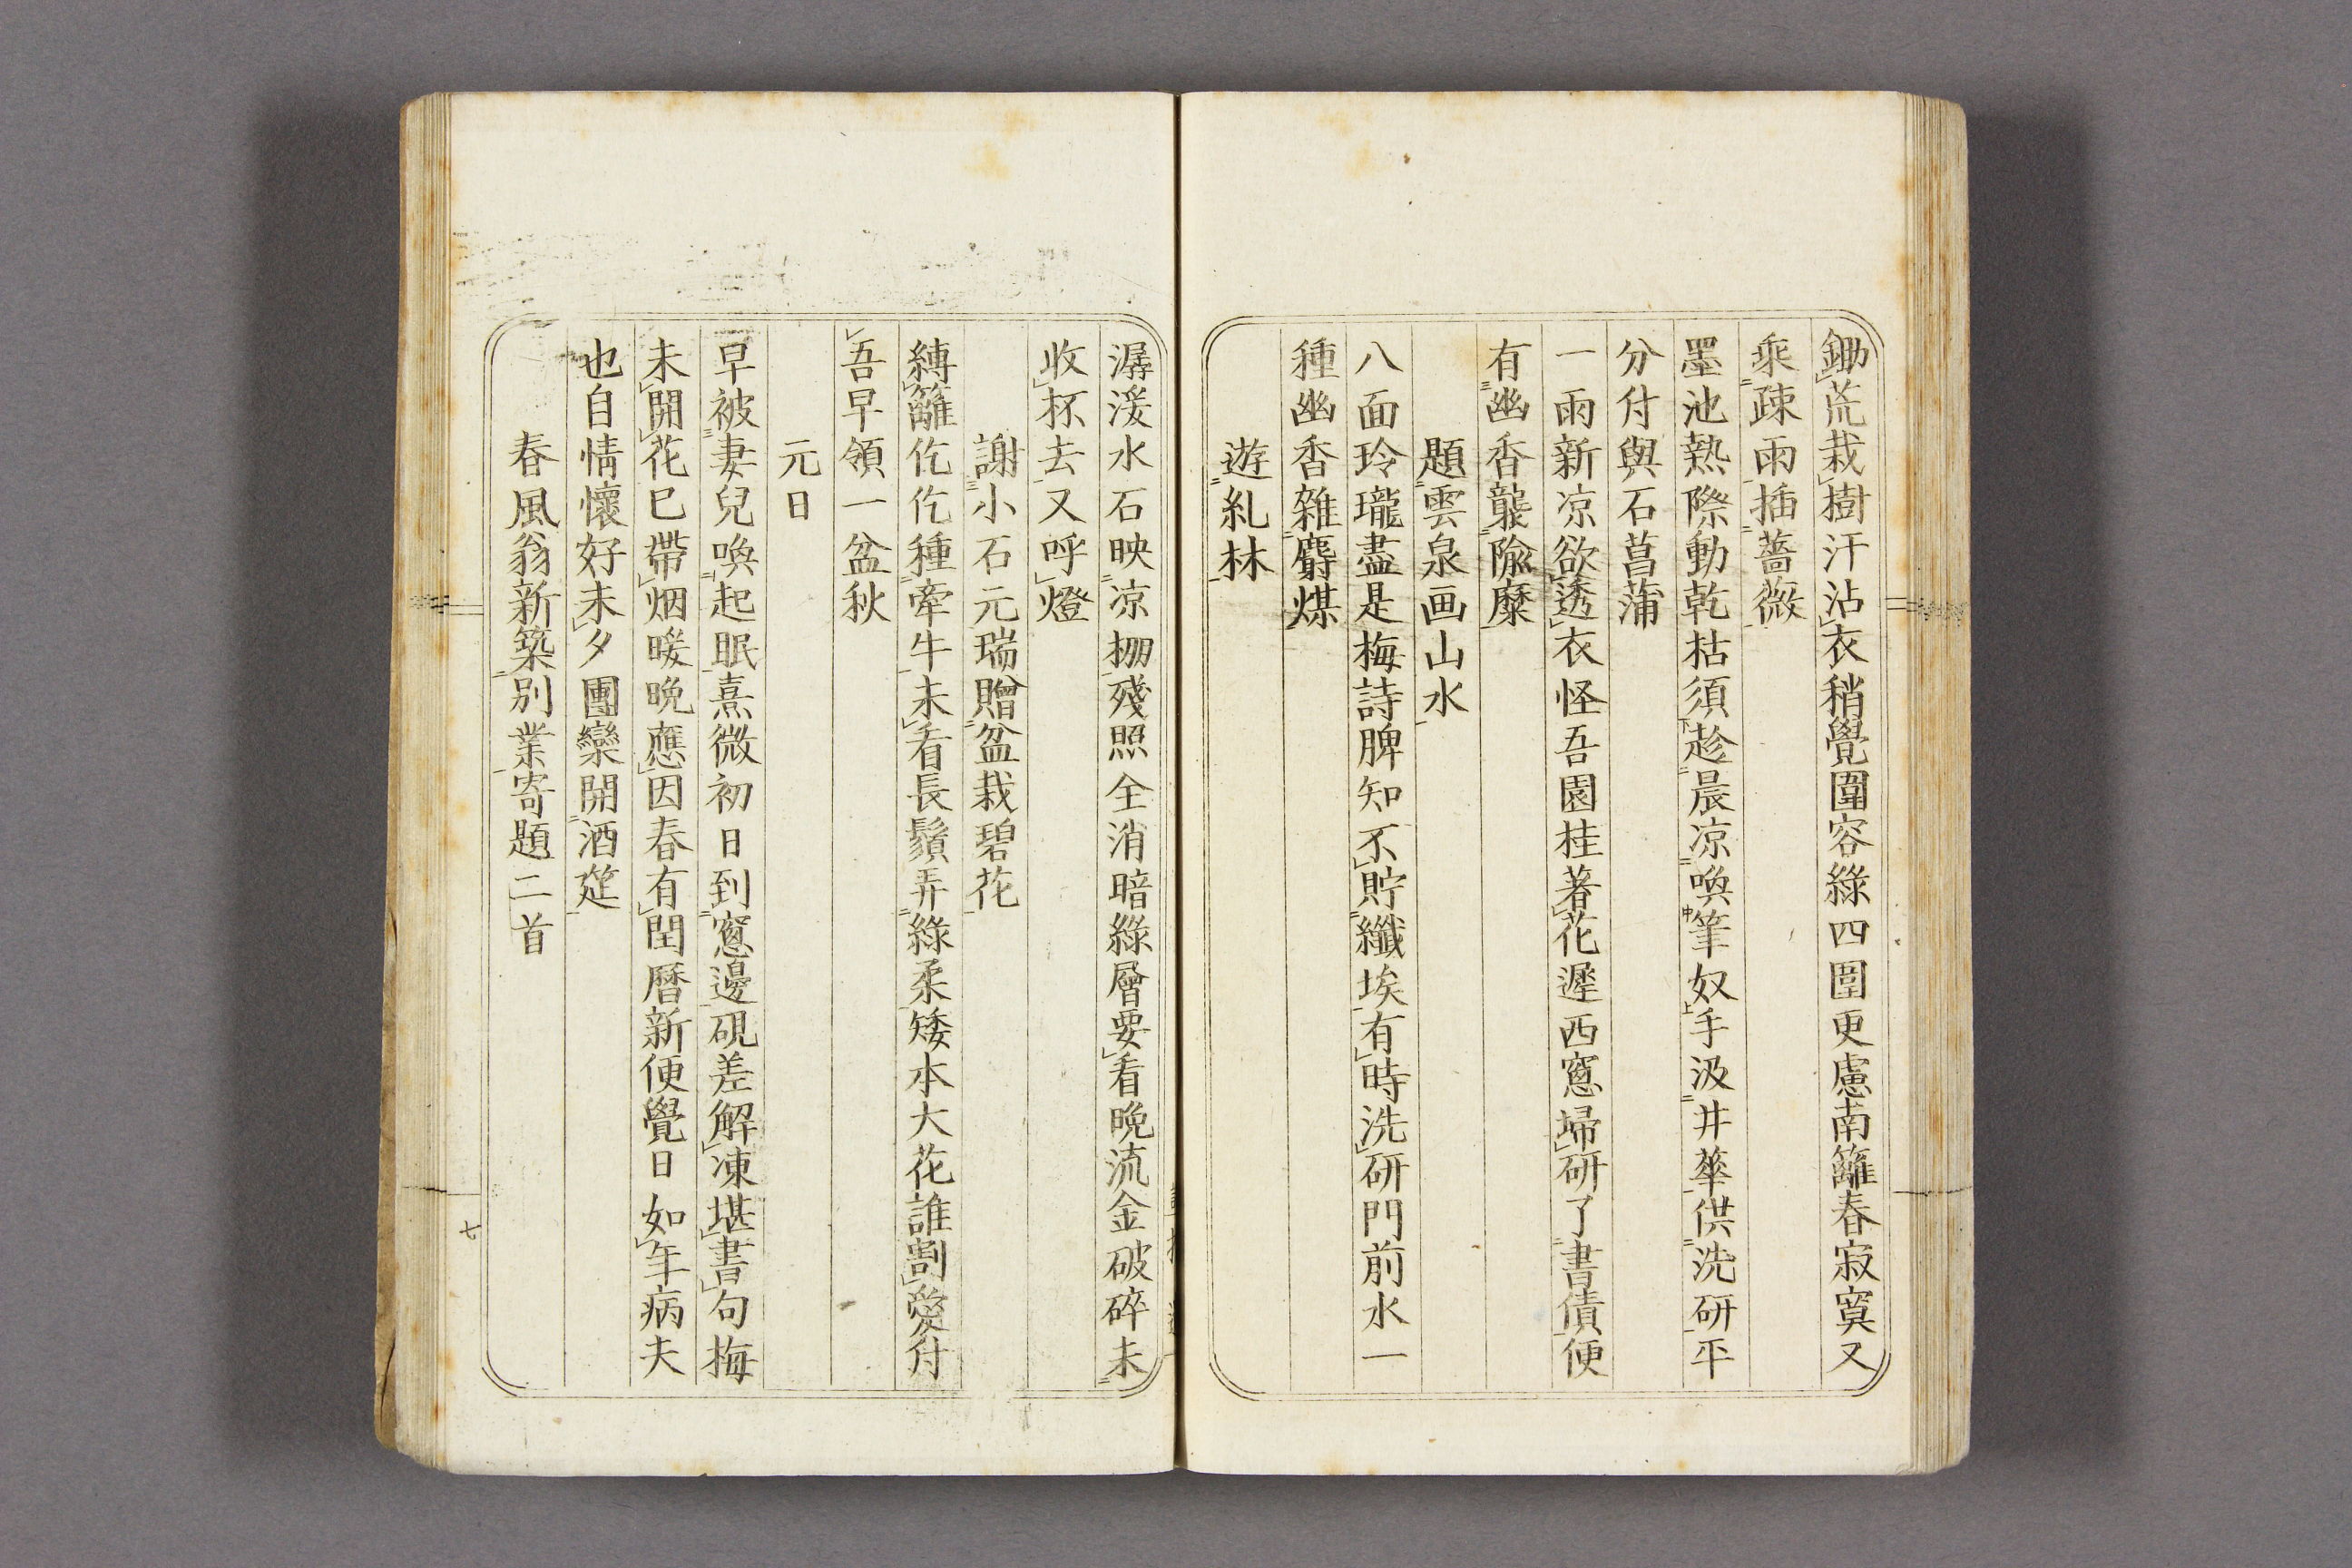 鋤荒栽樹汗沾衣稍覺圍容綠四圍更慮南籬春寂寞又
乘疎雨插薔薇
墨池熱際動乾枯須趁晨凉喚筆奴手汲井華供洗研平
分付與石菖蒲
一雨新凉欲透衣怪吾園桂著花遲西窻埽研了書債便
有幽香襲隃糜
題雲泉画山水
八面玲瓏盡是梅詩脾知不貯纖埃有時洗研門前水一
種幽香雜麝煤
遊糺林
潺湲水石映凉棚殘照全消暗綠層要看晚流金破碎未
收杯去又呼燈
謝小石元瑞贈盆栽碧花
縛籬仡仡種牽牛未看長鬚弄綠柔矮本大花誰割愛付
吾早領一盆秋
元日
早被妻兒喚起眠熹微初日到窻邊硯差解凍堪書句梅
未開花已帶烟暖晚應因春有閏曆新便覺日如年病夫
也自情懷好未夕團欒開酒筵
春風翁新築別業寄題二首
七